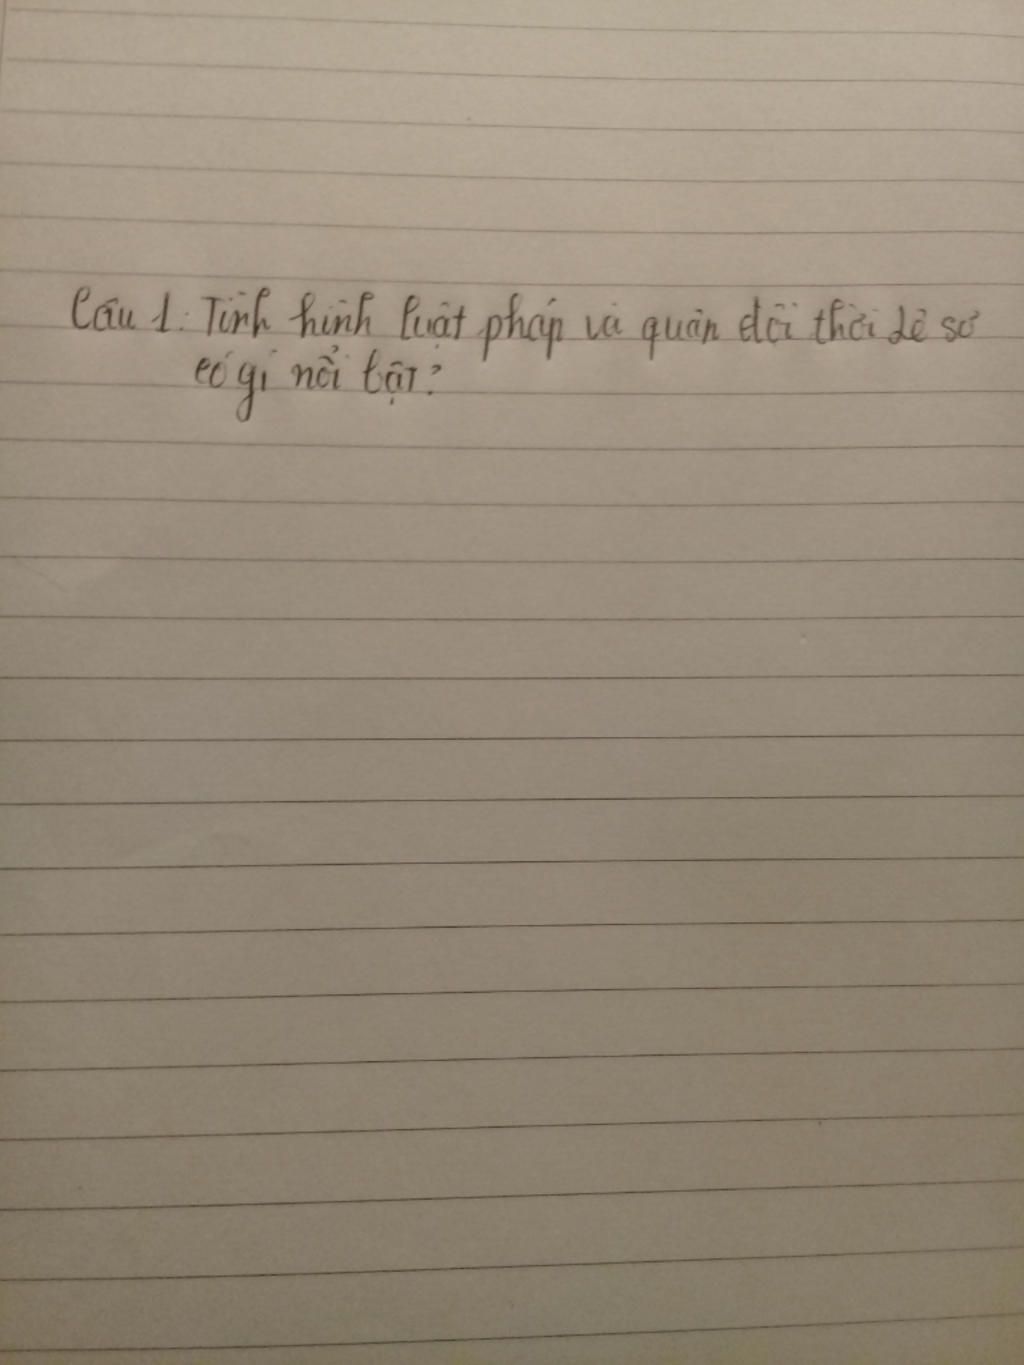 Câu 1: Tình hình luật pháp và quân đội thời Lê sơ
có gì nổi bật?